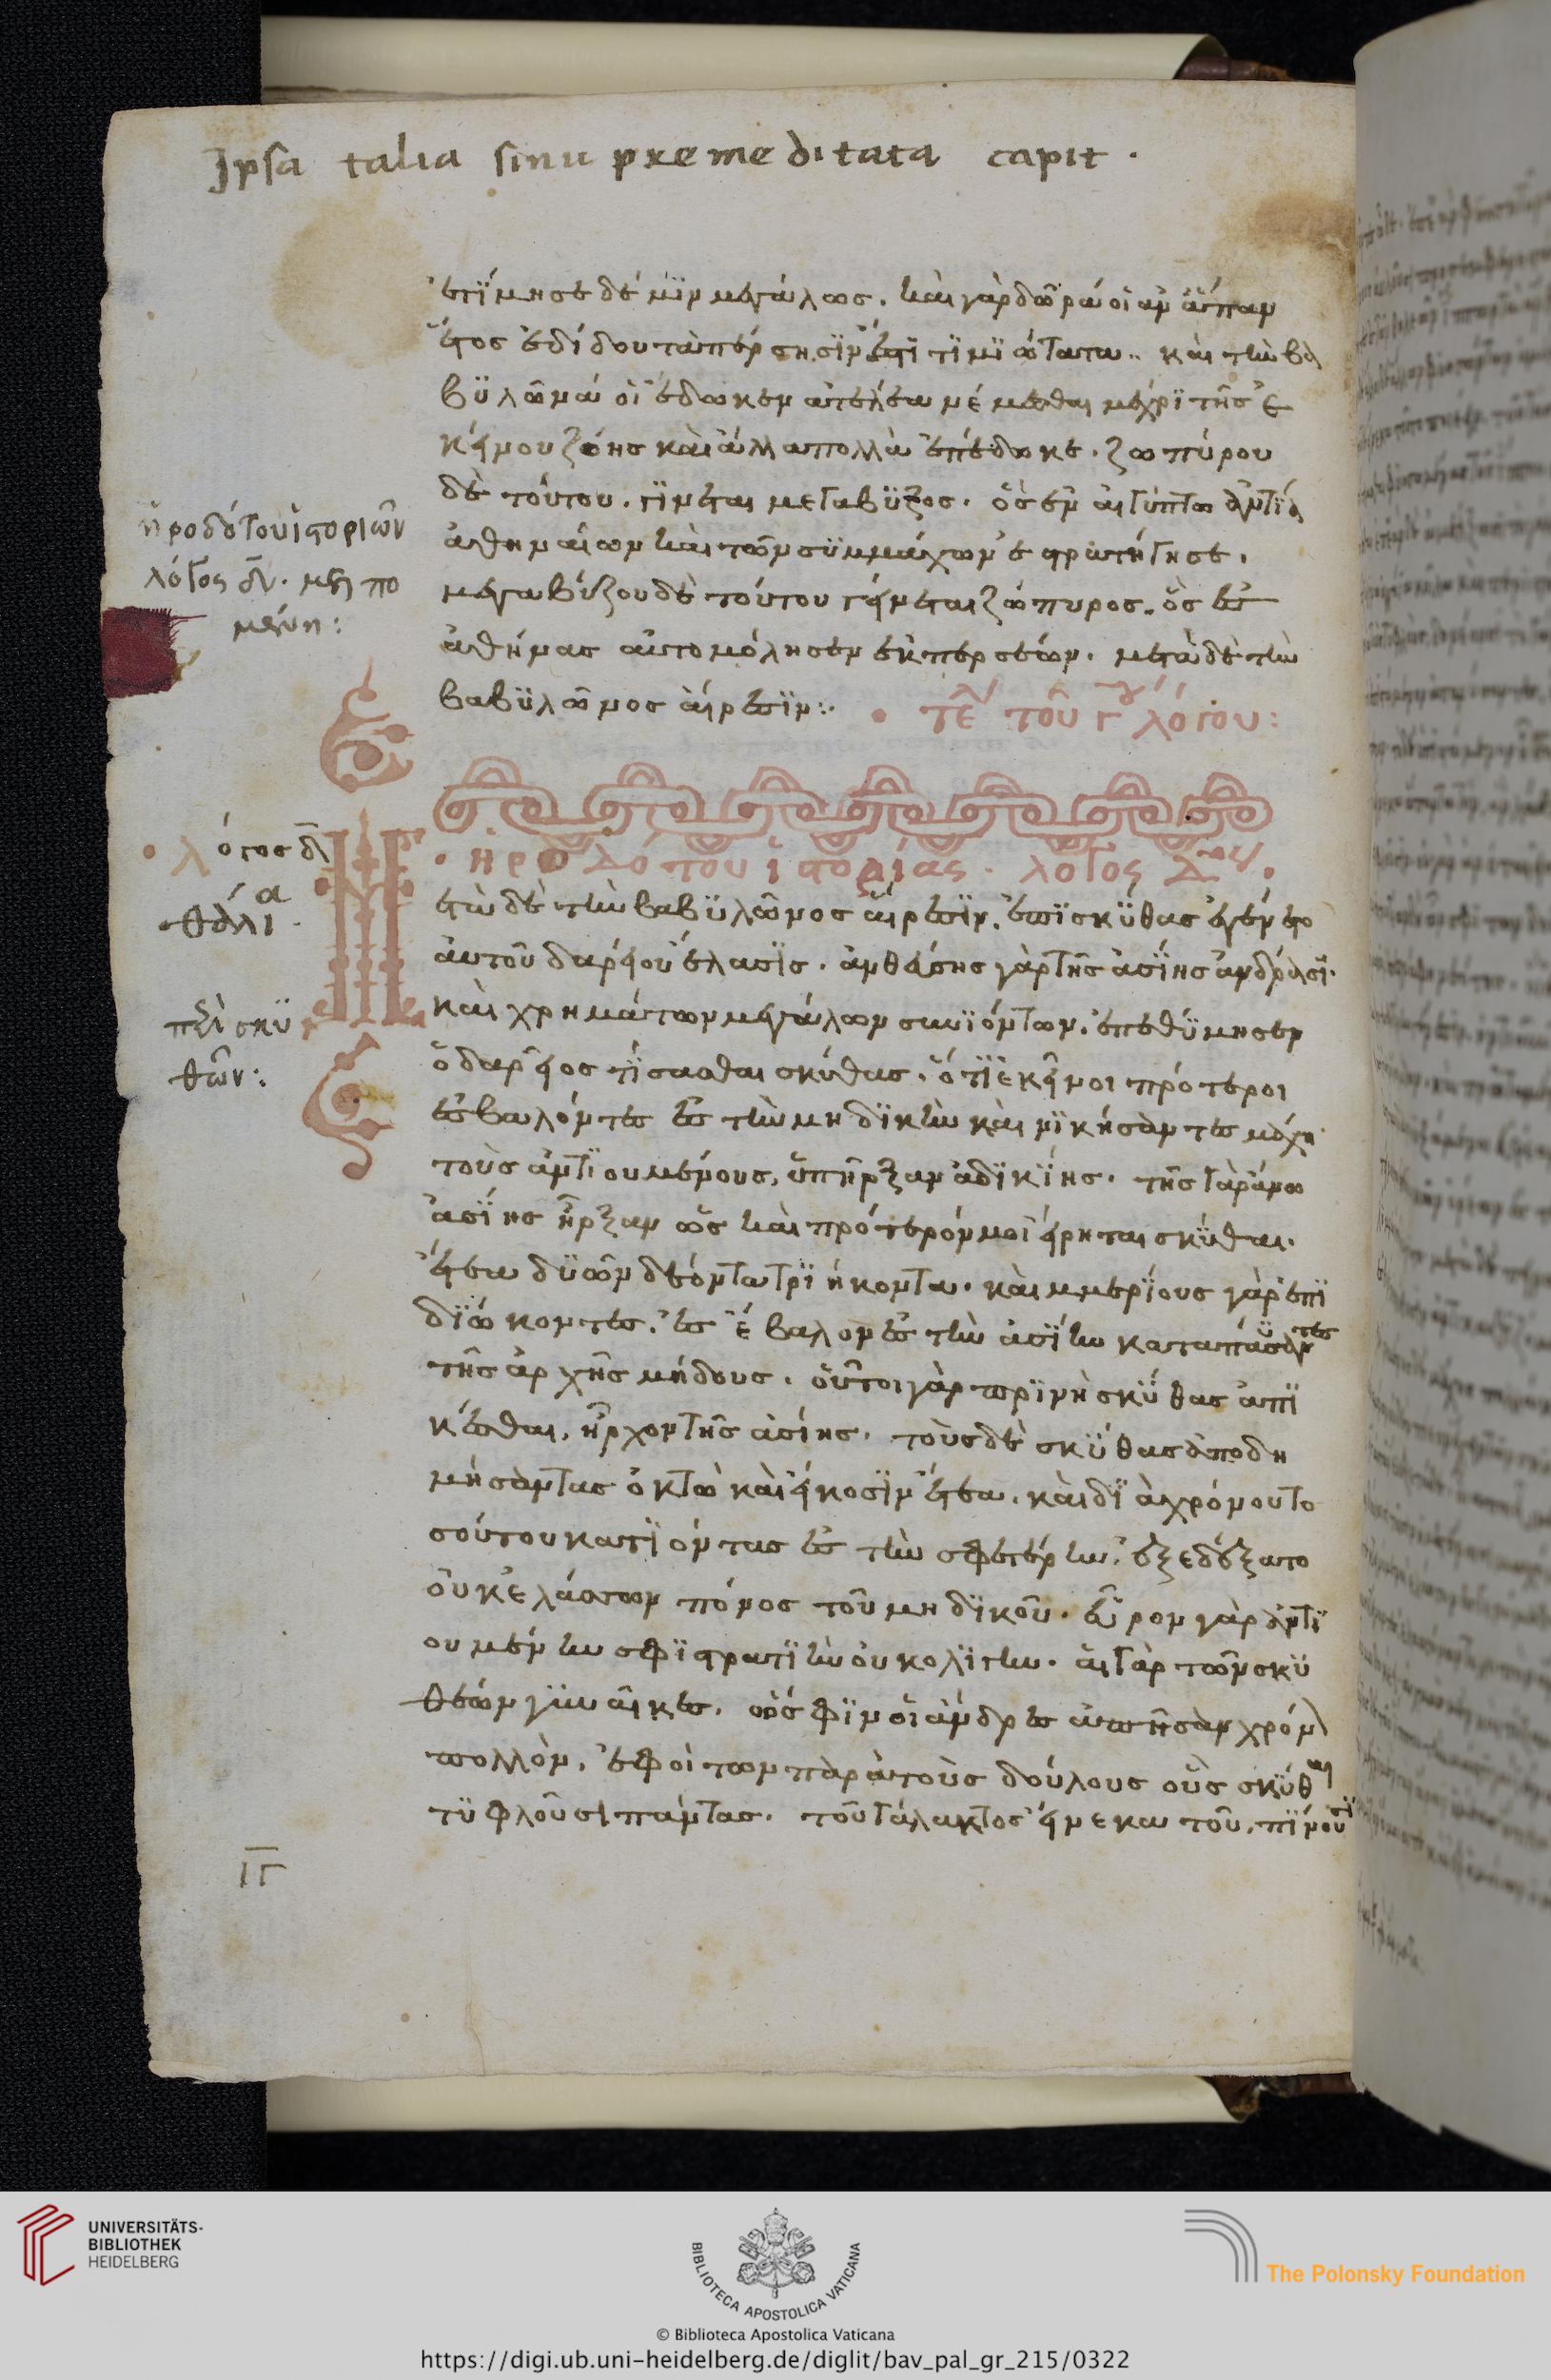 Ipsa talia sinu premeditata capit.
ἐτίμησε δέ μϊν μεγάλως. καὶ γὰρ δῶρά οἱ ἀν ἅπαν
ἔτος ἐδίδου τὰ πέρσησϊν ἐστὶ τϊμϊώτατα. καὶ τὴν βα
βϋλῶνά οἱ ἔδωκεν ἀτελέα νέμεσθαι μέχρϊ τῆς ἐ
κείνου ζόης καὶ ἄλλα πολλὰ ἐπέδωκε. ζωπύρου
δὲ τούτου. γϊνεται μεταβϋζος. ὃς ἐν αἰγύπτω ἀντία
ἀθηναίων καὶ τῶν συμμάχων ἐστρατήγησε.
μεγαβύζου δὲ τούτου γίνεται ζώπυρος. ὃς ἐς
ἀθήνας αὐτομόλησεν ἐκ περσέων. μετὰ δὲ τὴν
βαβϋλῶνος αἵρεσϊν:.
τέλ τοῦ γου λόγου:
ἡροδότου ἱστοριῶν
λόγος δος. μελπο
μένη:
λόγος δ
θάλια
περὶ σκϋ
θῶν:.
ἡροδότου ἱστορίας. λόγος Δος.
ετὰ δὲ τὴν βαβϋλῶνος αἵρεσϊν. ἐπὶ σκϋθας ἐγένετο
αὐτοῦ δαρείου ἔλασϊς. ἀνθεύσης γὰρ τῆς ἀσϊης ἀνδράσϊ.
καὶ χρημάτων μεγάλων συνϊόντων. ἐπεθϋμησεν
ὁ δαρεῖος τϊσασθαι σκύθας. ὅτϊ ἐκεῖνοι πρότεροι
ἐσβαλόντες ἐς τὴν μηδϊκὴν καὶ νϊκήσαντες μάχη
τοὺς ἀντϊουμένους, ὑπῆρξαν ἀδϊκϊης. τῆς γὰρ ἄνω
ἀσϊης ἦρξαν ὡς καὶ πρότερόν μοι εἴρηται σκϋθαι.
ἔτεα δϋῶν δέοντα τρϊήκοντα. καὶ μμερϊους γὰρ ἐπϊ
δϊώκοντες. ἐσέβαλον ἐς τὴν ἀσϊην καταπαύσαντες
τῆς ἀρχῆς μήδους. οὗτοι γὰρ πρϊν ἢ σκϋθας ἀπϊ
κέσθαι, ἦρχον τῆς ἀσίης. τοὺς δὲ σκϋθας ἀποδη
μήσαντας ὀκτὼ καὶ εἴκοσϊν ἔτεα. καὶ δϊὰ χρόνου το
σούτου κατϊόντας ἐς τὴν σφετέρην. ἐξεδέξατο
οὐκ ἐλάσσων πόνος τοῦ μηδϊκοῦ. εὗρον γὰρ ἀντϊ
ουμένην σφϊ στρατϊὴν οὐκ ολϊγην. αἱ γὰρ τῶν σκϋ
θέων γϋναῖκες. ὥς σφϊν οἱ ἄνδρες ἀπῆσαν χρόν
πολλόν. ἐφοίτων παρὰ τοὺς δούλους οὓς σκϋθαι
τϋφλοῦσι πάντας. τοῦ γάλακτος εἵνεκα τοῦ, πϊνουσϊ
ιγ
UNIVERSITÄTS-
BIBLIOTHEK
HEIDELBERG
BIBLIOTECA APOSTOLICA VATICANA
The Polonsky Foundation
© Biblioteca Apostolica Vaticana
https://digi.ub.uni-heidelberg.de/diglit/bav_pal_gr_215/0322